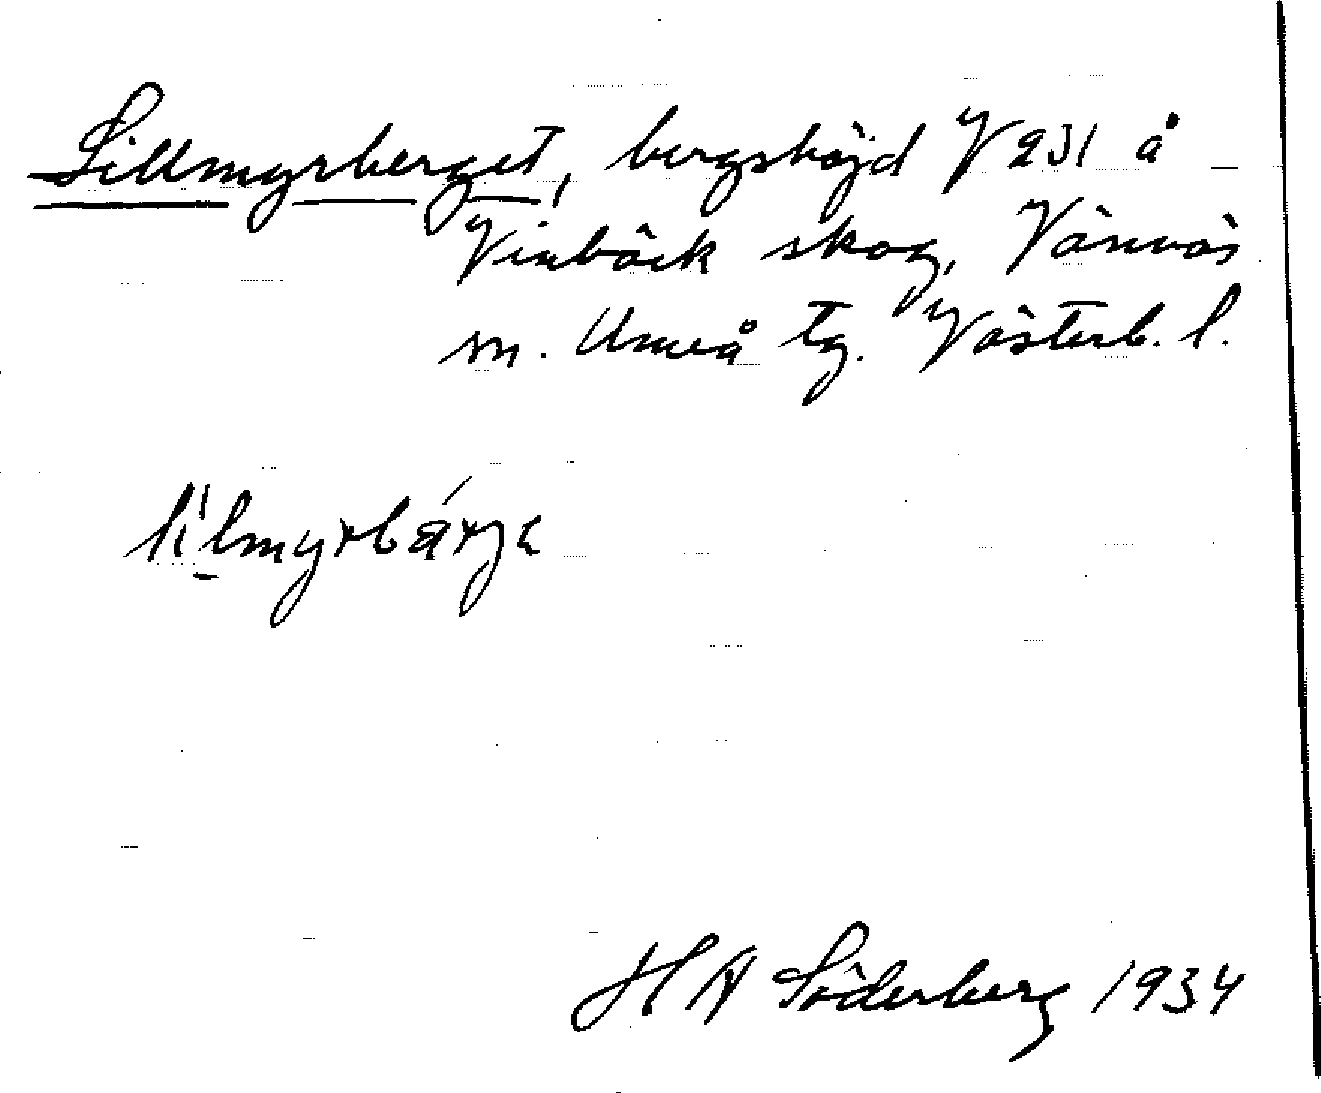 Lillmyrberget, bergshöjd V 231 å
Vinbäck skog, Vännäs
sn. Umeå tg. Västerb. l.
lilmyrbärjɛ
H A Söderberg 1934